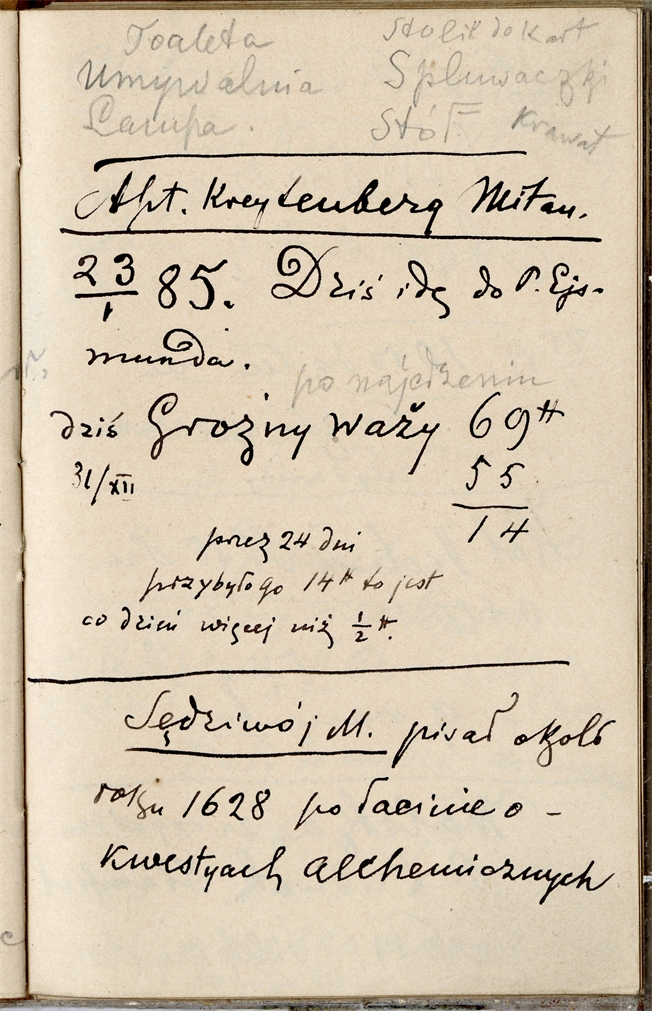 Toaleta Stolik do kart
Umywalnia Spluwaczki
Lampa. Stół Krawat
Apt. Kreytenberg Mitau.
23/1 85. Dziś idę do P. Ejs-
munda.
po najedzeniu
dziś Groźny waży 69 ℔
31/XII 55
14
przez 24 dni
przybyło go 14 ℔ to jest
co dzień więcej niż 1/2 ℔.
Sędziwój M. pisał około
roku 1628 po łacinie o -
kwestyach alchemicznych